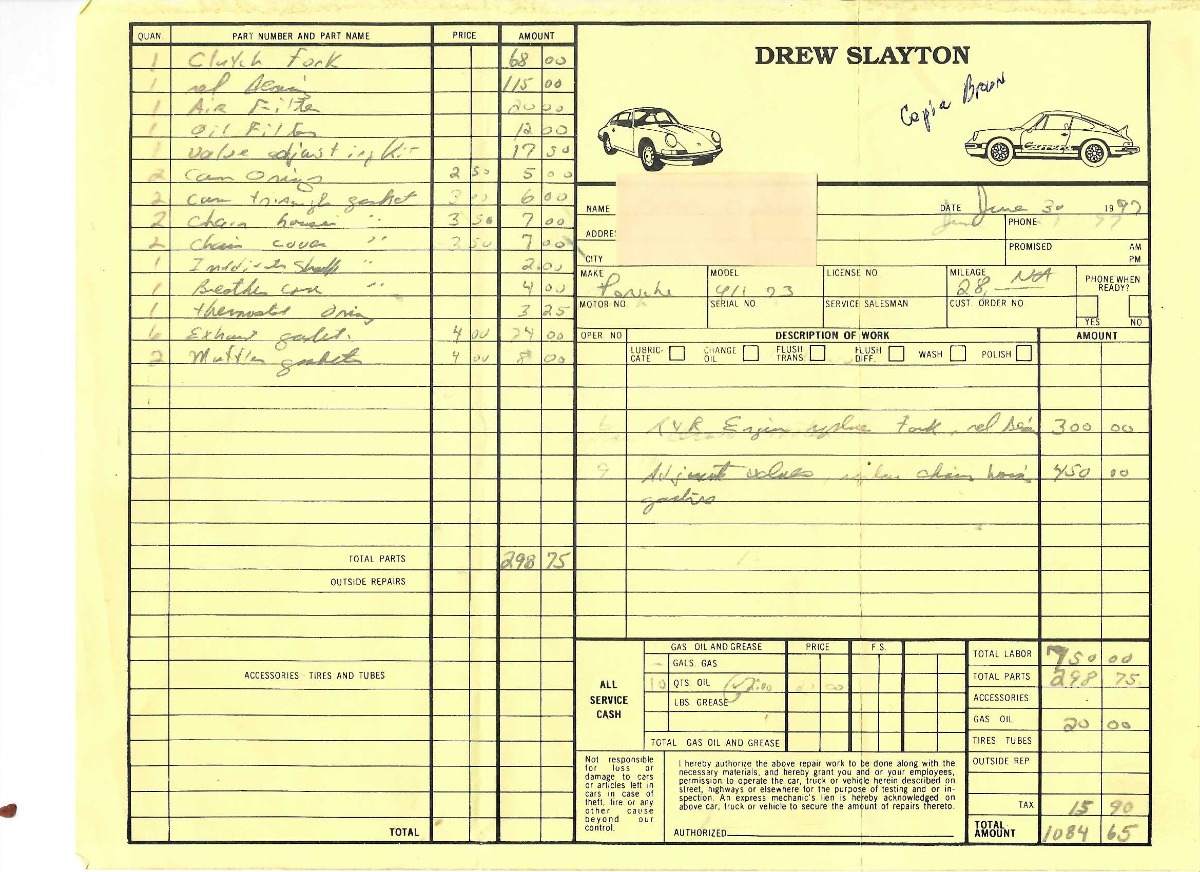 QUAN. PART NUMBER AND PART NAME PRICE AMOUNT
1 Clutch Fork 68 00
1 rel 115 00
1 Air Filter 20 00
1 Oil Filter 12 00
1 valve adjusting Kit 17 50
2 Cam Orings 2 50 5 00
2 Cam triangle gasket 3 00 6 00
2 Chain housing " 3 50 7 00
2 Chain cover " 3 50 7 00
1 Shaft " 2.00
1 Breather " 4 00
1 thermostat Oring 3 25
6 Exhaust gasket. 4 00 24 00
2 Muffler gaskets 4 00 8 00
TOTAL PARTS 298 75
OUTSIDE REPAIRS
ACCESSORIES - TIRES AND TUBES
TOTAL
DREW SLAYTON
Brown
NAME
DATE June 30 1997
ADDRES
PHONE
CITY
PROMISED AM
PM
MAKE Porsche MODEL 911 73 LICENSE NO MILEAGE 28, N/A PHONE WHEN READY?
MOTOR NO. SERIAL NO. SERVICE SALESMAN CUST. ORDER NO YES NO
OPER NO DESCRIPTION OF WORK AMOUNT
LUBRI-CATE CHANGE OIL FLUSH TRANS. FLUSH DIFF. WASH POLISH
R & R Engine replace Fork, rel 300 00
9 Adjust valves, replace chain 450 00
gaskets
ALL SERVICE CASH
GAS OIL AND GREASE PRICE F.S.
GALS. GAS
10 QTS. OIL 2.00
LBS GREASE
TOTAL GAS OIL AND GREASE
TOTAL LABOR 750 00
TOTAL PARTS 298 75
ACCESSORIES
GAS OIL 20 00
TIRES TUBES
OUTSIDE REP
TAX 15 90
TOTAL AMOUNT 1084 65
Not responsible
for loss or
damage to cars
or articles left in
cars in case of
theft, fire or any
other cause
beyond our
control.
I hereby authorize the above repair work to be done along with the
necessary materials, and hereby grant you and or your employees,
permission to operate the car, truck or vehicle herein described on
street, highways or elsewhere for the purpose of testing and or in-
spection. An express mechanic's lien is hereby acknowledged on
above car, truck or vehicle to secure the amount of repairs thereto.
AUTHORIZED